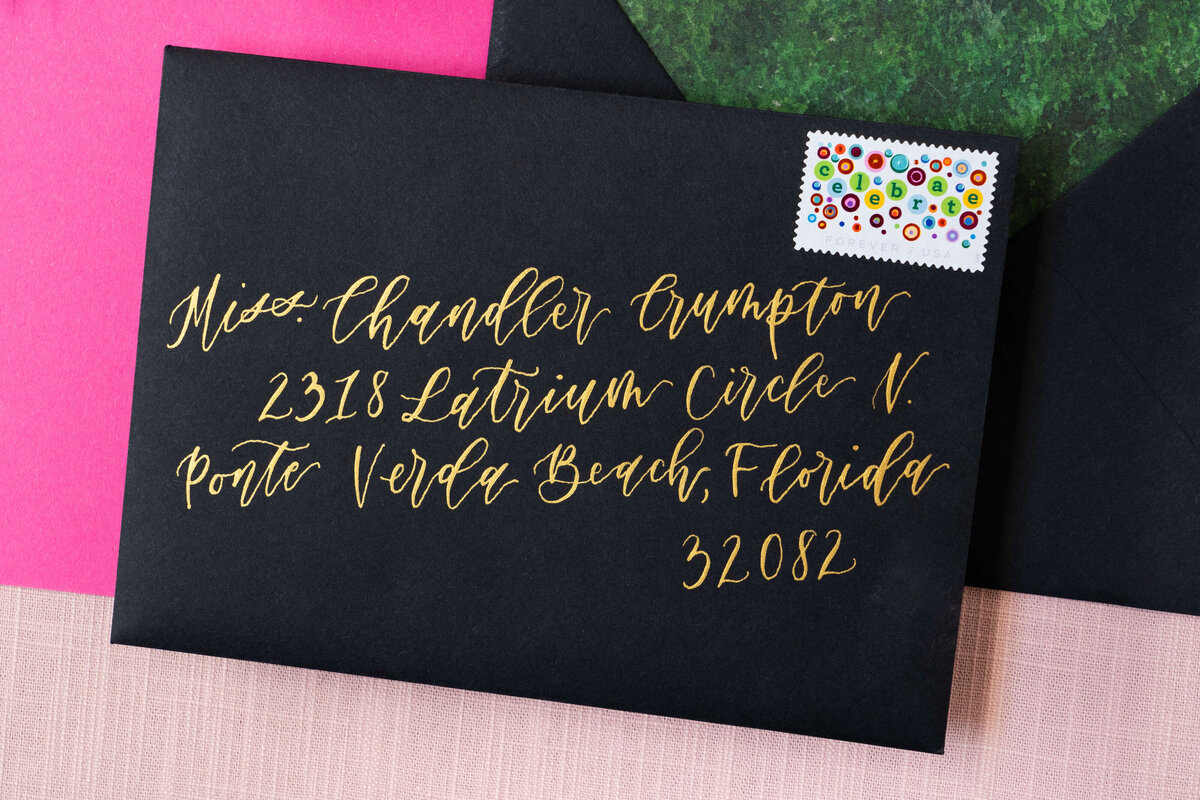 celebrate
FOREVER / USA
Miss. Chandler Crumpton
2318 Latrium Circle N.
Ponte Verda Beach, Florida
32082